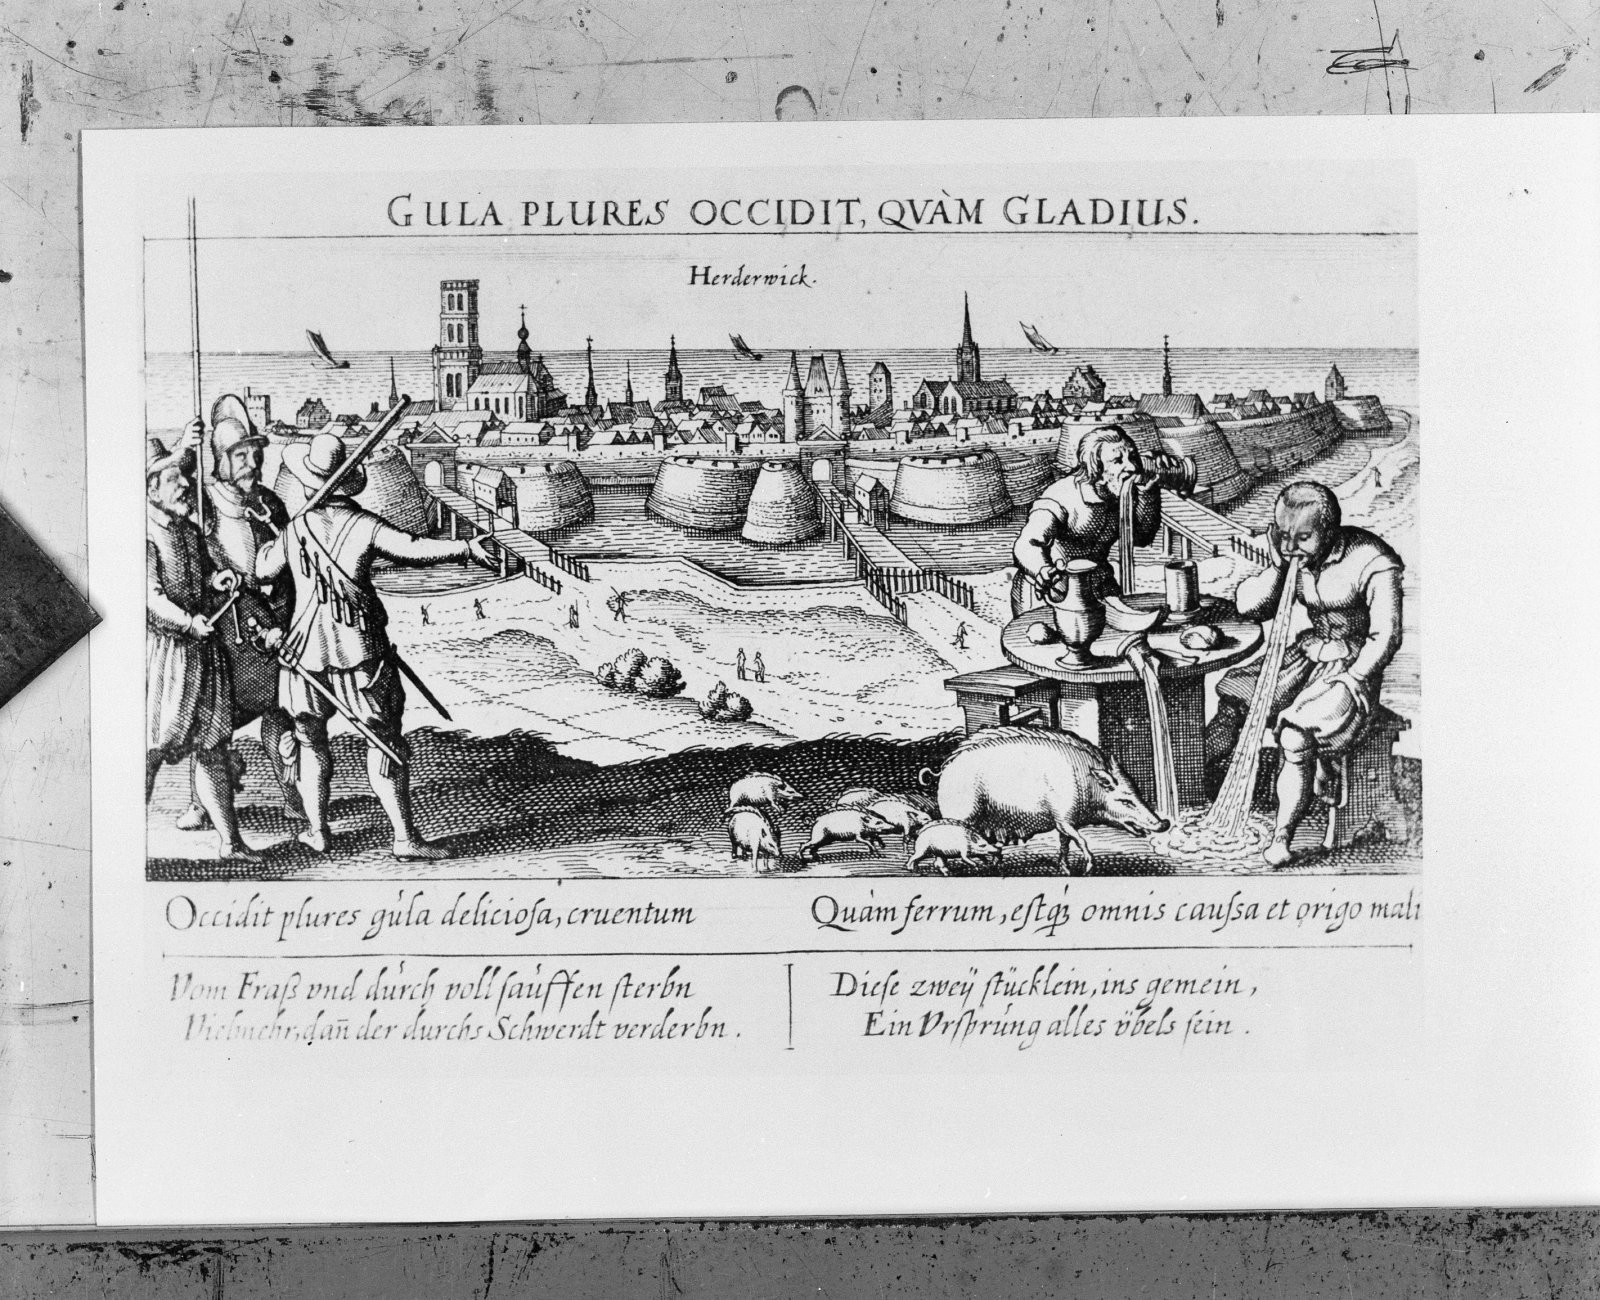 GULA PLURES OCCIDIT, QVÀM GLADIUS.
Herderwick.
Occidit plures gúla delicioſa, cruentum
Quàm ferrum, eſtq́ꝫ omnis cauſsa et origo mali
Vom Fraß vnd dúrch voll ſaúffen ſterbn
Vielmehr, dañ der durchs Schwerdt verderbn.
Dieſe zweÿ ſtücklein, ins gemein,
Ein Vrſprúng alles v̈bels ſein.